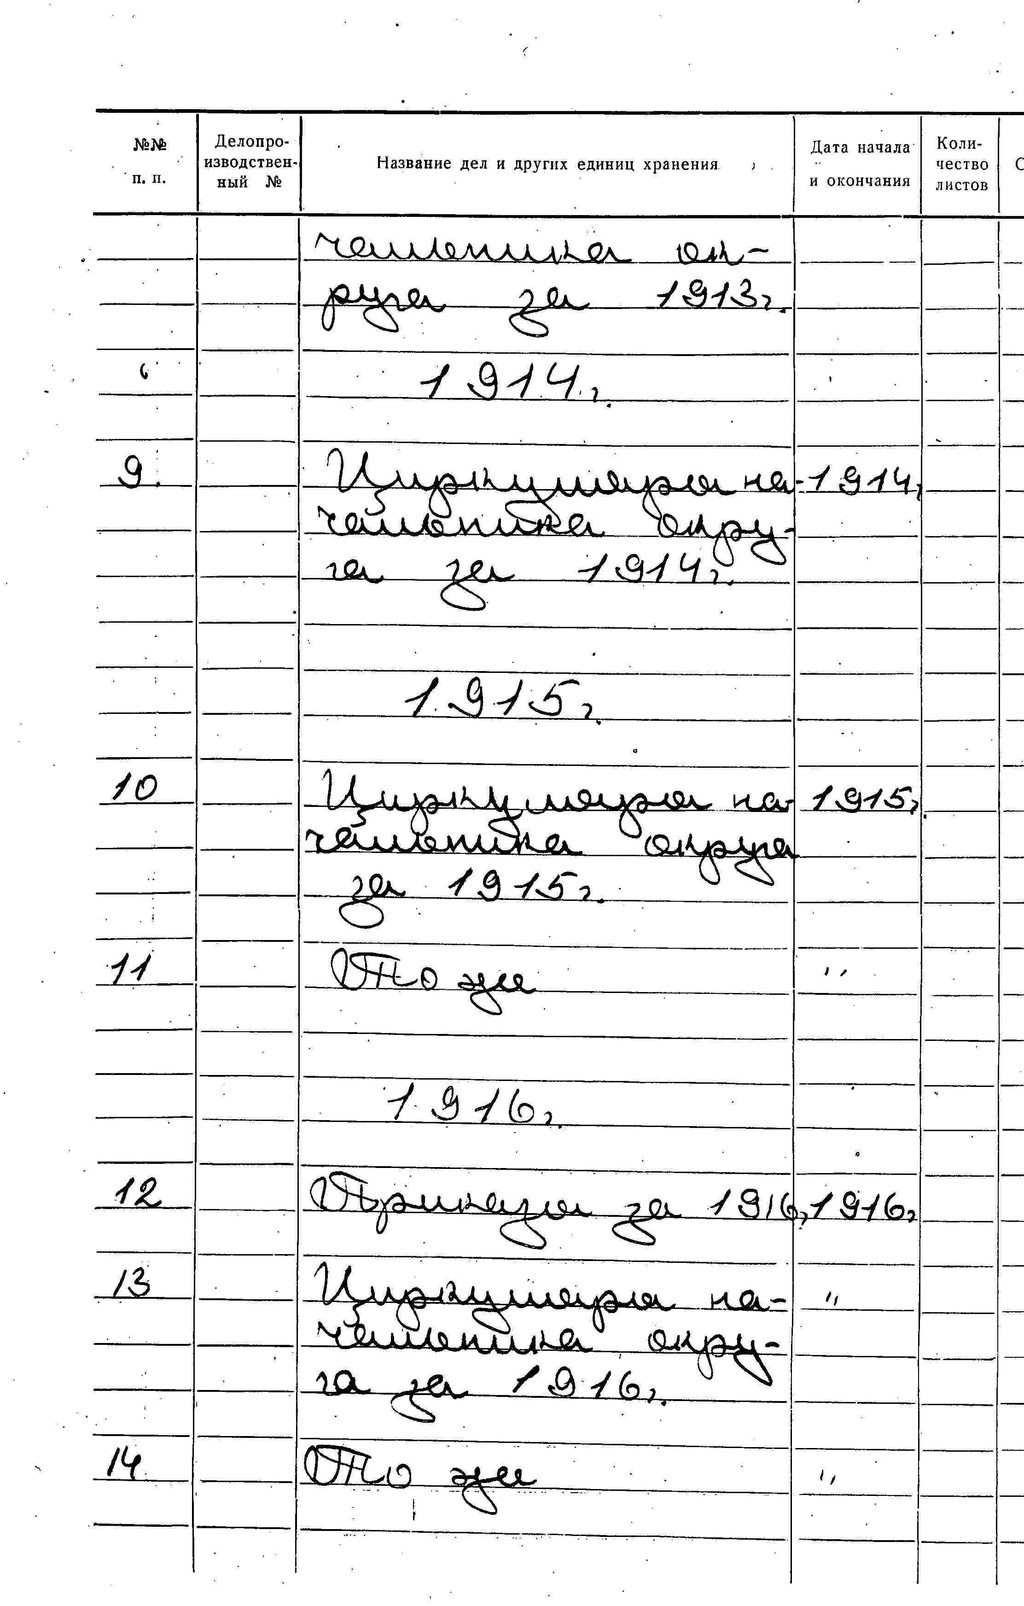 №№ п. п. Делопроизводственный № Название дел и других единиц хранения Дата начала и окончания Количество листов С
чальника ок-
руга за 1913г.
1914г.
9. Циркуляры на- 1914г
чальника окру-
га за 1914г.
1915г.
10 Циркуляры на- 1915г.
чальника округа
за 1915г.
11 То же "
1916г.
12 Приказы за 1916г 1916г
13 Циркуляры на- "
чальника окру-
га за 1916г.
14 То же "